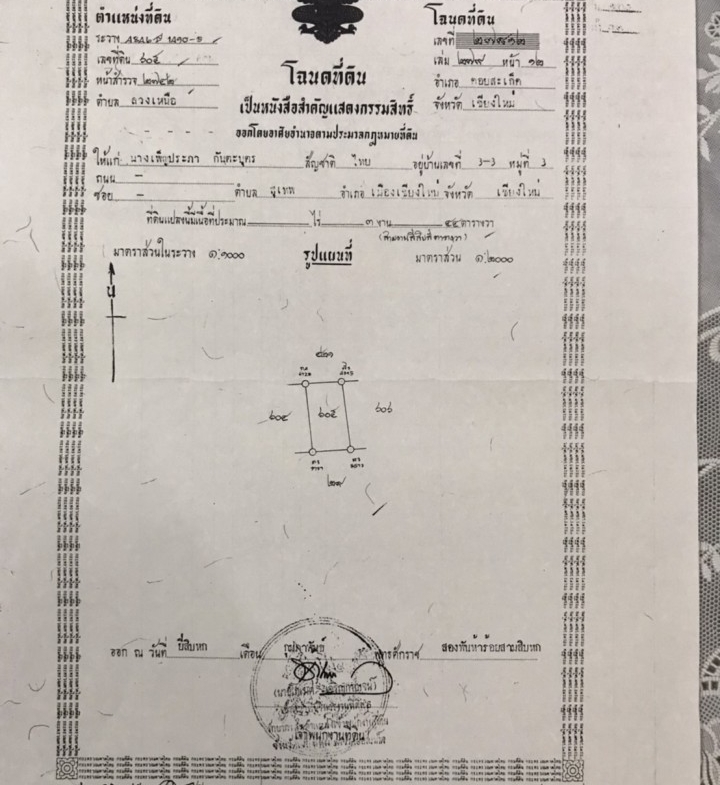 ตำแหน่งที่ดิน
ระวาง
เลขที่ดิน ๖๐๕
หน้าสำรวจ ๒๗๔๒
ตำบล ลวงเหนือ
โฉนดที่ดิน
เลขที่ ๒๗๙๑๒
เล่ม ๒๗๙ หน้า ๑๒
อำเภอ ดอยสะเก็ด
จังหวัด เชียงใหม่
โฉนดที่ดิน
เป็นหนังสือสำคัญแสดงกรรมสิทธิ์
ออกโดยอาศัยอำนาจตามประมวลกฎหมายที่ดิน
ให้แก่ นางเพ็ญประภา กันตะบุตร สัญชาติ ไทย อยู่บ้านเลขที่ 3-3 หมู่ที่ 3
ถนน –
ซอย – ตำบล สุเทพ อำเภอ เมืองเชียงใหม่ จังหวัด เชียงใหม่
ที่ดินแปลงนี้มีเนื้อที่ประมาณ ไร่ ๓ งาน ๔๔ ตารางวา
(สามงานสี่สิบสี่ตารางวา)
มาตราส่วนในระวาง ๑:๑๐๐๐ รูปแผนที่ มาตราส่วน ๑:๒๐๐๐
น
๖๐๔ ๖๐๕ ๖๐๖
ออก ณ วันที่ ยี่สิบหก เดือน กุมภาพันธ์ พุทธศักราช สองพันห้าร้อยสามสิบหก
เจ้าพนักงานที่ดิน